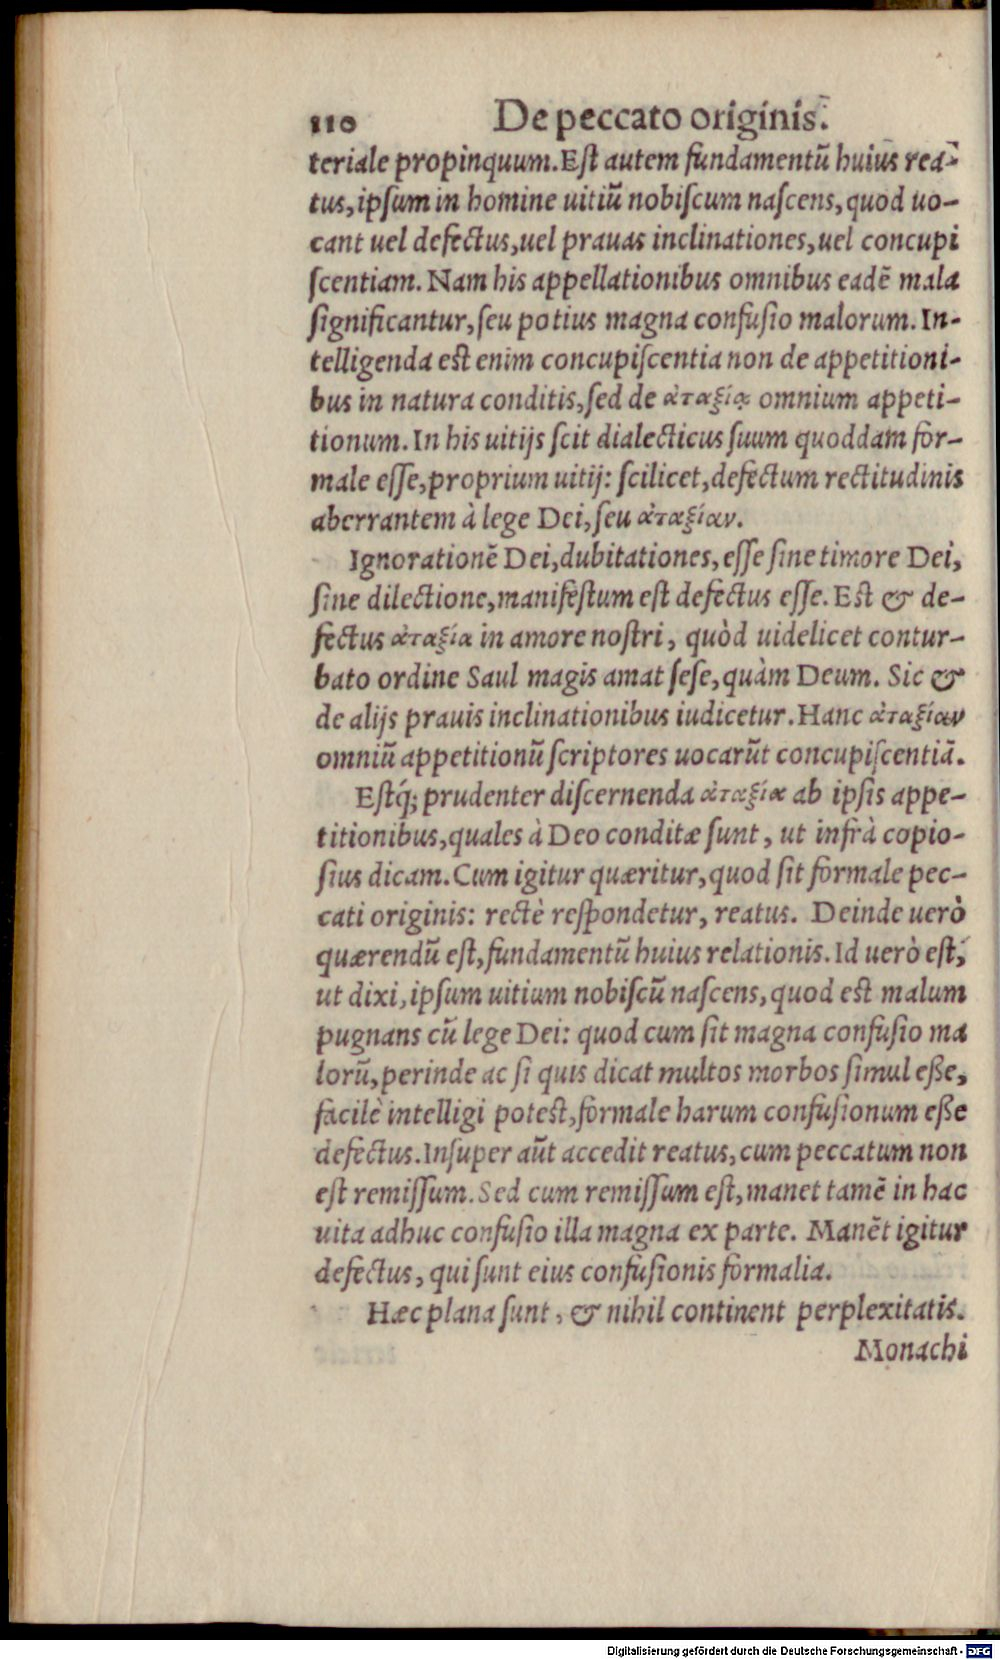 110 De peccato originis.
teriale propinquum. Eſt autem fundamentũ huius rea-
tus, ipſum in homine uitiũ nobiſcum naſcens, quod uo-
cant uel defectus, uel prauas inclinationes, uel concupi
ſcentiam. Nam his appellationibus omnibus eadẽ mala
ſignificantur, ſeu potius magna confuſio malorum. In-
telligenda eſt enim concupiſcentia non de appetitioni-
bus in natura conditis, ſed de ἀταξίᾳ omnium appeti-
tionum. In his uitijs ſcit dialecticus ſuum quoddam for-
male eſſe, proprium uitij: ſcilicet, defectum rectitudinis
aberrantem à lege Dei, ſeu ἀταξίαν.
Ignorationẽ Dei, dubitationes, eſſe ſine timore Dei,
ſine dilectione, manifeſtum eſt defectus eſſe. Eſt & de-
fectus ἀταξία in amore noſtri, quòd uidelicet contur-
bato ordine Saul magis amat ſeſe, quàm Deum. Sic &
de alijs prauis inclinationibus iudicetur. Hanc ἀταξίαν
omniũ appetitionũ ſcriptores uocarũt concupiſcentiã.
Eſtq́; prudenter diſcernenda ἀταξία ab ipſis appe-
titionibus, quales à Deo conditæ ſunt, ut infrà copio-
ſius dicam. Cum igitur quæritur, quod ſit formale pec-
cati originis: rectè reſpondetur, reatus. Deinde uerò
quærendũ eſt, fundamentũ huius relationis. Id uerò eſt,
ut dixi, ipſum uitium nobiſcũ naſcens, quod eſt malum
pugnans cũ lege Dei: quod cum ſit magna confuſio ma
lorũ, perinde ac ſi quis dicat multos morbos ſimul eße,
facilè intelligi poteſt, formale harum confuſionum eße
defectus. Inſuper aũt accedit reatus, cum peccatum non
eſt remiſſum. Sed cum remiſſum eſt, manet tamẽ in hac
uita adhuc confuſio illa magna ex parte. Manẽt igitur
defectus, qui ſunt eius confuſionis formalia.
Hæc plana ſunt, & nihil continent perplexitatis.
Monachi
Digitalisierung gefördert durch die Deutsche Forschungsgemeinschaft - DFG